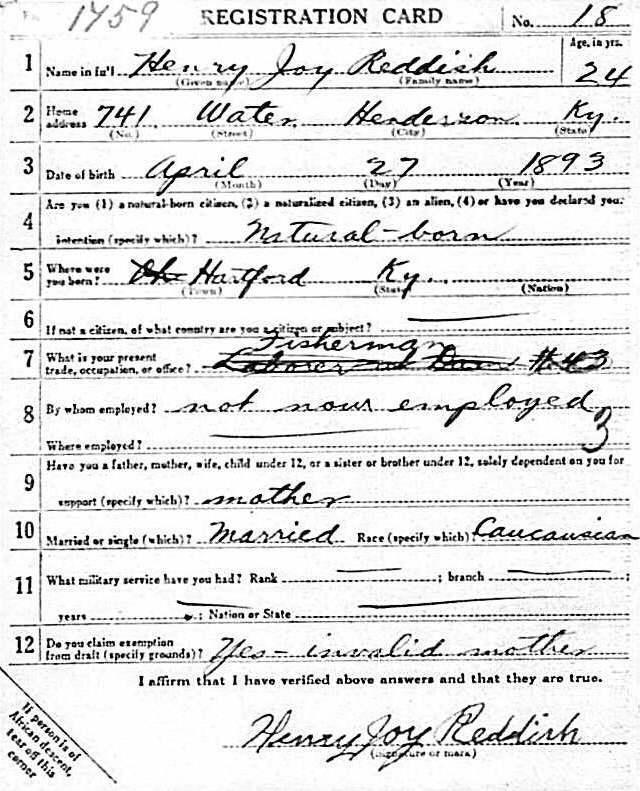 1759 REGISTRATION CARD No. 18
1 Name in full Henry Joy Reddish Age, in yrs. 24
(Given name) (Family name)
2 Home address 741 Water Henderson Ky.
(No.) (Street) (City) (State)
3 Date of birth April 27 1893
(Month) (Day) (Year)
Are you (1) a natural-born citizen, (2) a naturalized citizen, (3) an alien, (4) or have you declared your
4 intention (specify which)? Natural-born
5 Where were you born? Oh Hartford Ky.
(Town) (State) (Nation)
6 If not a citizen, of what country are you a citizen or subject?
Fisherman
7 What is your present trade, occupation, or office? Laborer Dam #43
8 By whom employed? not now employed
3
Where employed?
Have you a father, mother, wife, child under 12, or a sister or brother under 12, solely dependent on you for
9 support (specify which)? mother
10 Married or single (which)? Married Race (specify which)? Caucausian
11 What military service have you had? Rank ; branch ;
years ; Nation or State
12 Do you claim exemption from draft (specify grounds)? Yes - invalid mother
I affirm that I have verified above answers and that they are true.
Henry Joy Reddish
(Signature or mark)
If person is of
African descent,
tear off this
corner